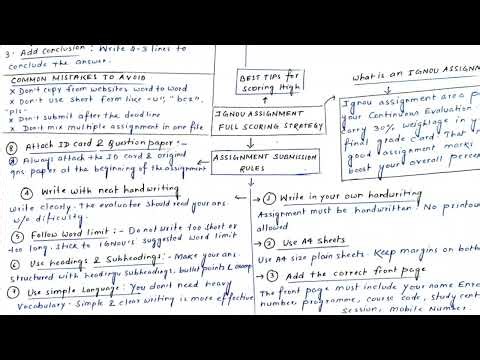 3. Add Conclusion : Write 2-3 lines to
conclude the answer.
COMMON MISTAKES TO AVOID
x Don't copy from websites word to word
x Don't use short form like "u", "bcz",
"pls"
x Don't submit after the dead line
x Don't mix multiple assignment in one file
BEST TIPS for
Scoring High
IGNOU ASSIGNMENT
FULL SCORING STRATEGY
ASSIGNMENT SUBMISSION
RULES
What is an IGNOU ASSIGN
Ignou assignment are a p
your Continuous Evaluation
carry 30% weightage in y
final grade card. That m
good assignment marks
boost your overall percen
⑧ Attach ID card & Question paper :-
Always attach the ID card & original
qns paper at the beginning of the assignment
④ Write with neat handwriting
Write clearly. The evaluator should read your ans
w/o difficulty.
⑤ Follow word limit :- Do not write too short or
too long. Stick to IGNOU's suggested word limit
⑥ Use headings & Subheadings :- Make your ans
structured with headings subheadings, bullet points &
⑦ Use simple Language : You don't need heavy
Vocabulary. Simple & clear writing is more effective
① Write in your own handwriting
Assignment must be handwritten. No printou
allowed
② Use A4 Sheets
Use A4 size plain sheets. Keep margins on both
③ Add the correct front page
The front page must include your name Enro
number, programme, course code, study cent
Session, Mobile Number.